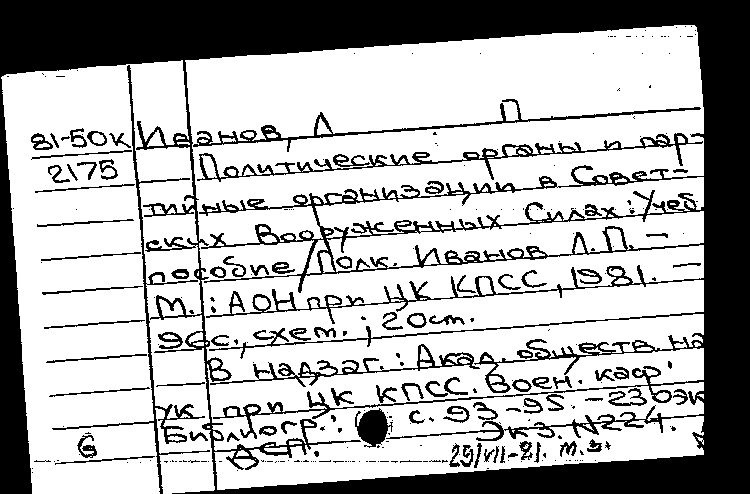 81-50к Иванов, Л П
2175 Политические органы и пар-
тийные организации в Совет-
ских Вооруженных Силах: Учеб.
пособие / Полк. Иванов Л.П. —
М.: АОН при ЦК КПСС, 1981. —
96с., схем.; 20см.
В надзаг.: Акад. обществ. на
ук при ЦК КПСС. Воен. каф.
Библиогр.: с. 93-95. - 230эк
Экз. N224.
6 ДСП. 29/VII-81. т.з.